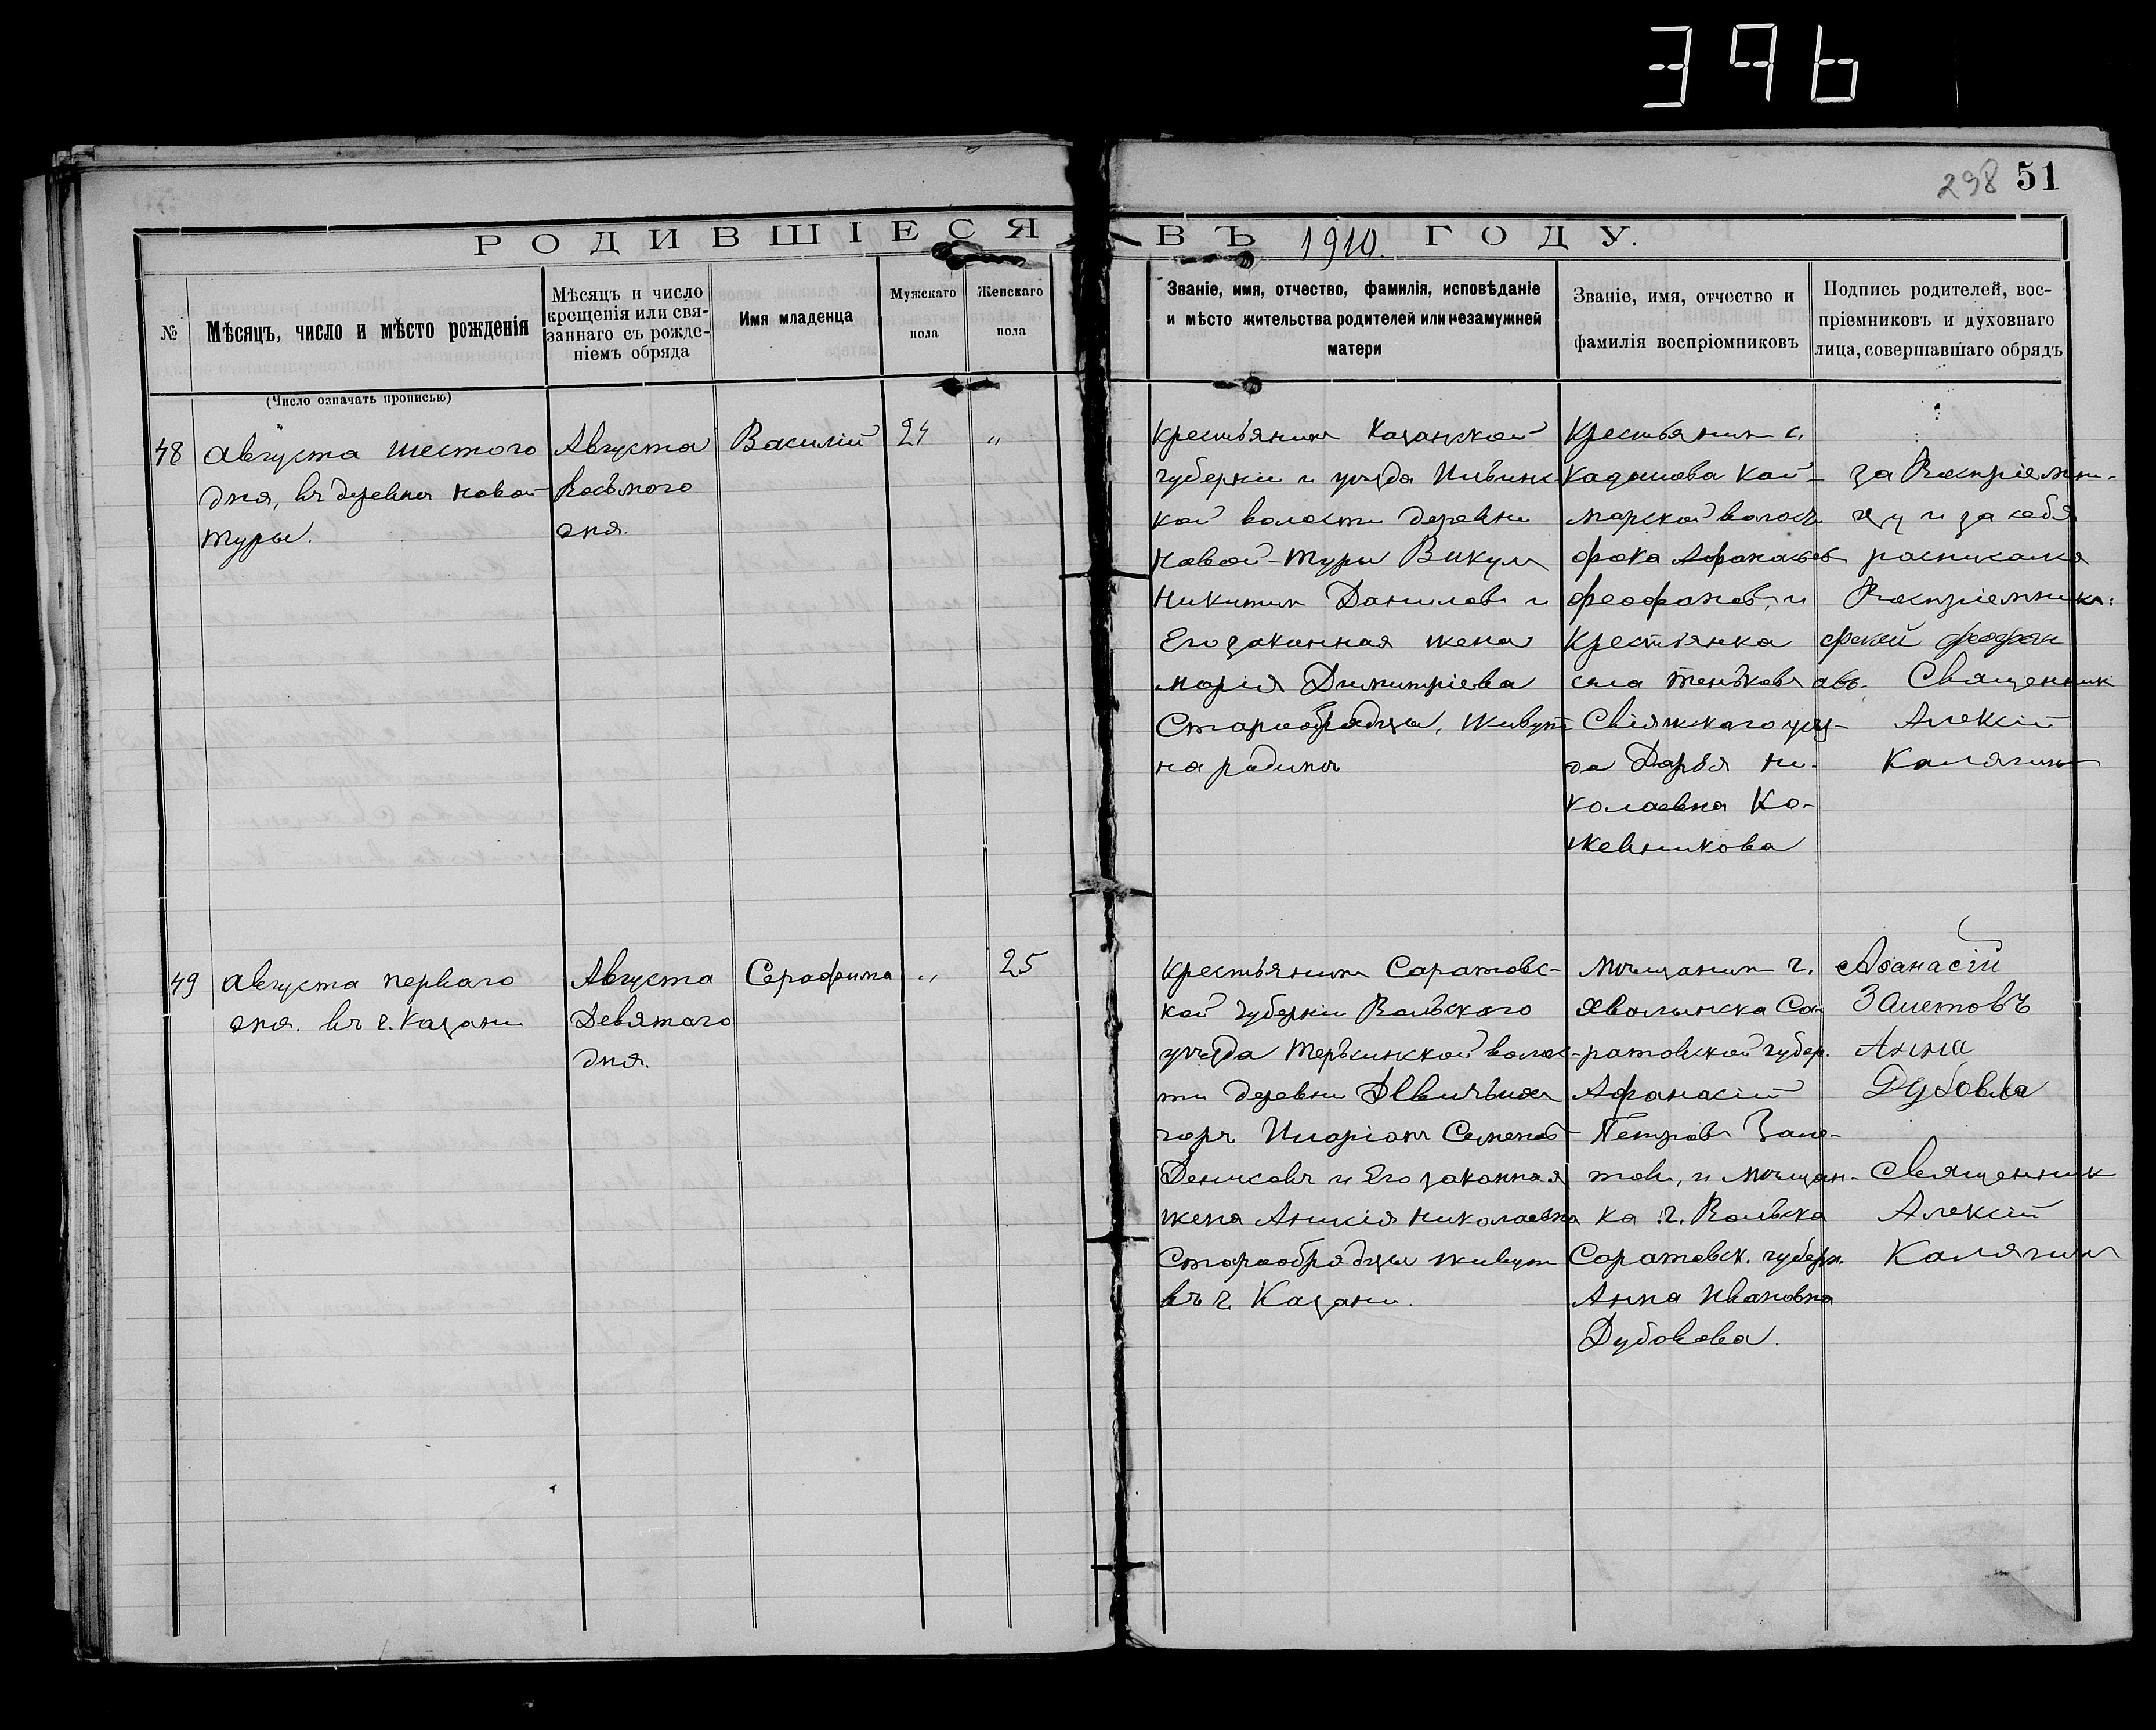 396
298 51
РОДИВШІЕСЯ ВЪ 1910. ГОДУ.
№
Мѣсяцъ, число и мѣсто рожденія
Мѣсяцъ и число
крещенія или свя-
заннаго съ рожде-
ніемъ обряда
Имя младенца
Мужскаго
пола
Женскаго
пола
Званіе, имя, отчество, фамилія, исповѣданіе
и мѣсто жительства родителей или незамужней
матери
Званіе, имя, отчество и
фамилія воспріемниковъ
Подпись родителей, вос-
пріемниковъ и духовнаго
лица, совершавшаго обрядъ
(Число означать прописью)
48
Августа шестого
дня, въ деревнѣ Новой
Туры.
Августа
Восьмого
дня.
Василій
24
"
Крестьянинъ Казанской
губерніи и уѣзда Ильинс-
кой волости деревни
Новой-Туры Викулъ
Никитинъ Даниловъ и
Его законная жена
Марія Димитріева
Старообрядцы, живутъ
на родинѣ
Крестьянинъ с.
Кадышева Кай-
марской волости
Фока Афанасьевъ
Феофановъ, и
Крестьянка
села Теньковъ
Свіяжскаго уѣз-
да Дарья Ни-
колаевна Ко-
жевникова
за Воспріемни-
цу и за себя
расписался
Воспріемникъ:
Фокій Феофан
авъ.
Священникъ
Алексій
Калягинъ
49
Августа перваго
дня. въ г. Казани
Августа
Девятаго
дня.
Серафима
"
25
Крестьянинъ Саратовс-
кой губерніи Вольскаго
уѣзда Терсинской волос-
ти деревни Дѣвичьихъ
горъ Иларіонъ Семеновъ
Денисовъ и Его законная
жена Анисія Николаевна
Старообрядцы живутъ
въ г. Казани.
Мѣщанинъ г.
Хвалынска Са-
ратовской губер.
Афанасій
Петровъ Заме-
товъ, и мѣщан-
ка г. Вольска
Саратовск. губерн.
Анна Ивановна
Дубовова.
Афанасій
Заметовъ
Анна
Дубовва
Священникъ
Алексій
Калягинъ